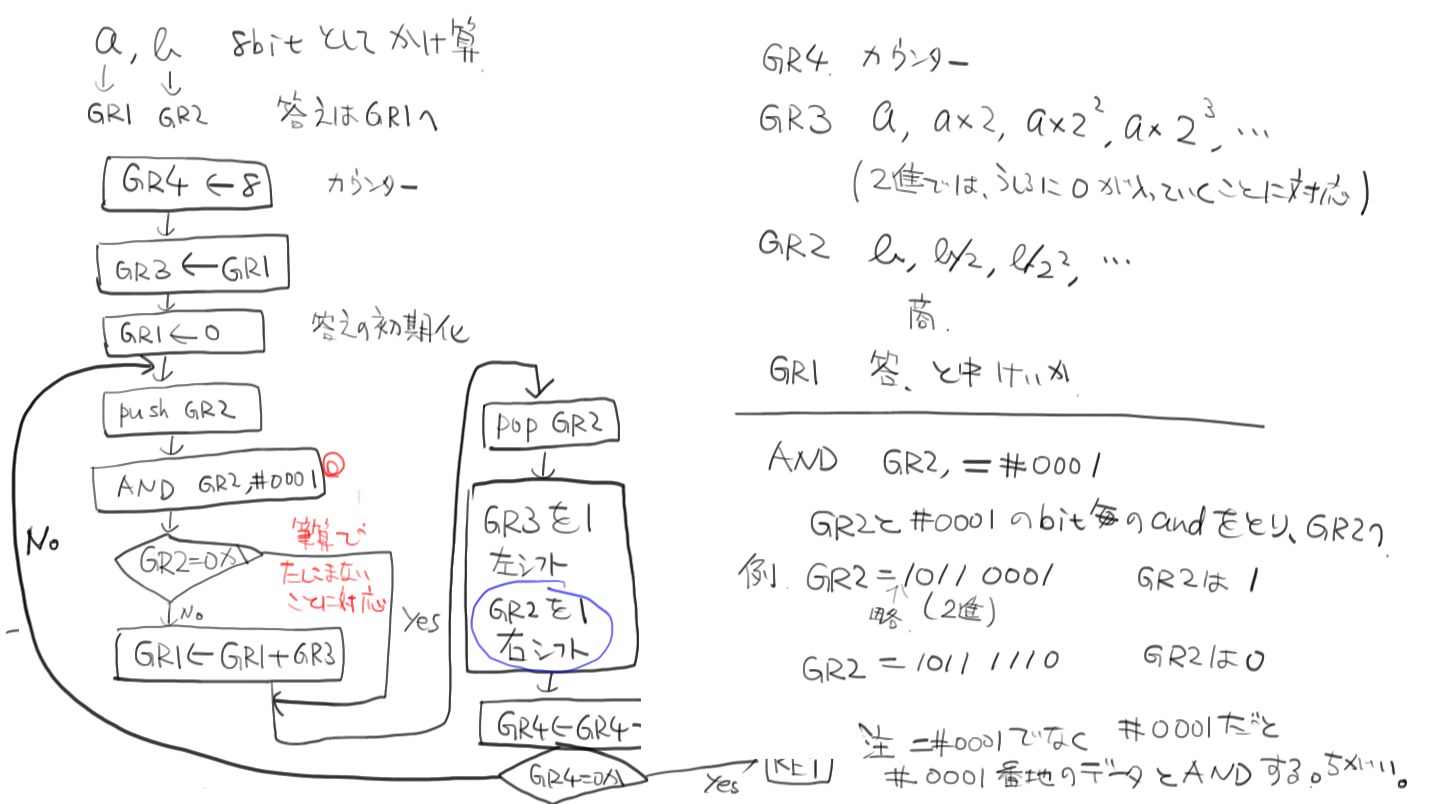 a, b 8bit としてかけ算
GR1 GR2 答えはGR1へ
GR4 ← 8 カウンター
GR3 ← GR1
GR1 ← 0 答えの初期化
push GR2
AND GR2, #0001
GR2=0か
筆算で
たしこまない
ことに対応
No
Yes
GR1 ← GR1+GR3
No
pop GR2
GR3を1
左シフト
GR2を1
右シフト
GR4 ← GR4-
GR4=0か
Yes
RET
GR4 カウンター
GR3 a, a×2, a×2², a×2³, …
(2進では、うしろに0が入っていくことに対応)
GR2 b, b/2, b/2², …
商.
GR1 答、と中けいか
AND GR2, =#0001
GR2と#0001のbit毎のandをとり、GR2へ
例. GR2=1011 0001 GR2は1
略. (2進)
GR2=1011 1110 GR2は0
注 =#0001でなく #0001だと
#0001番地のデータとANDする。ちがい。